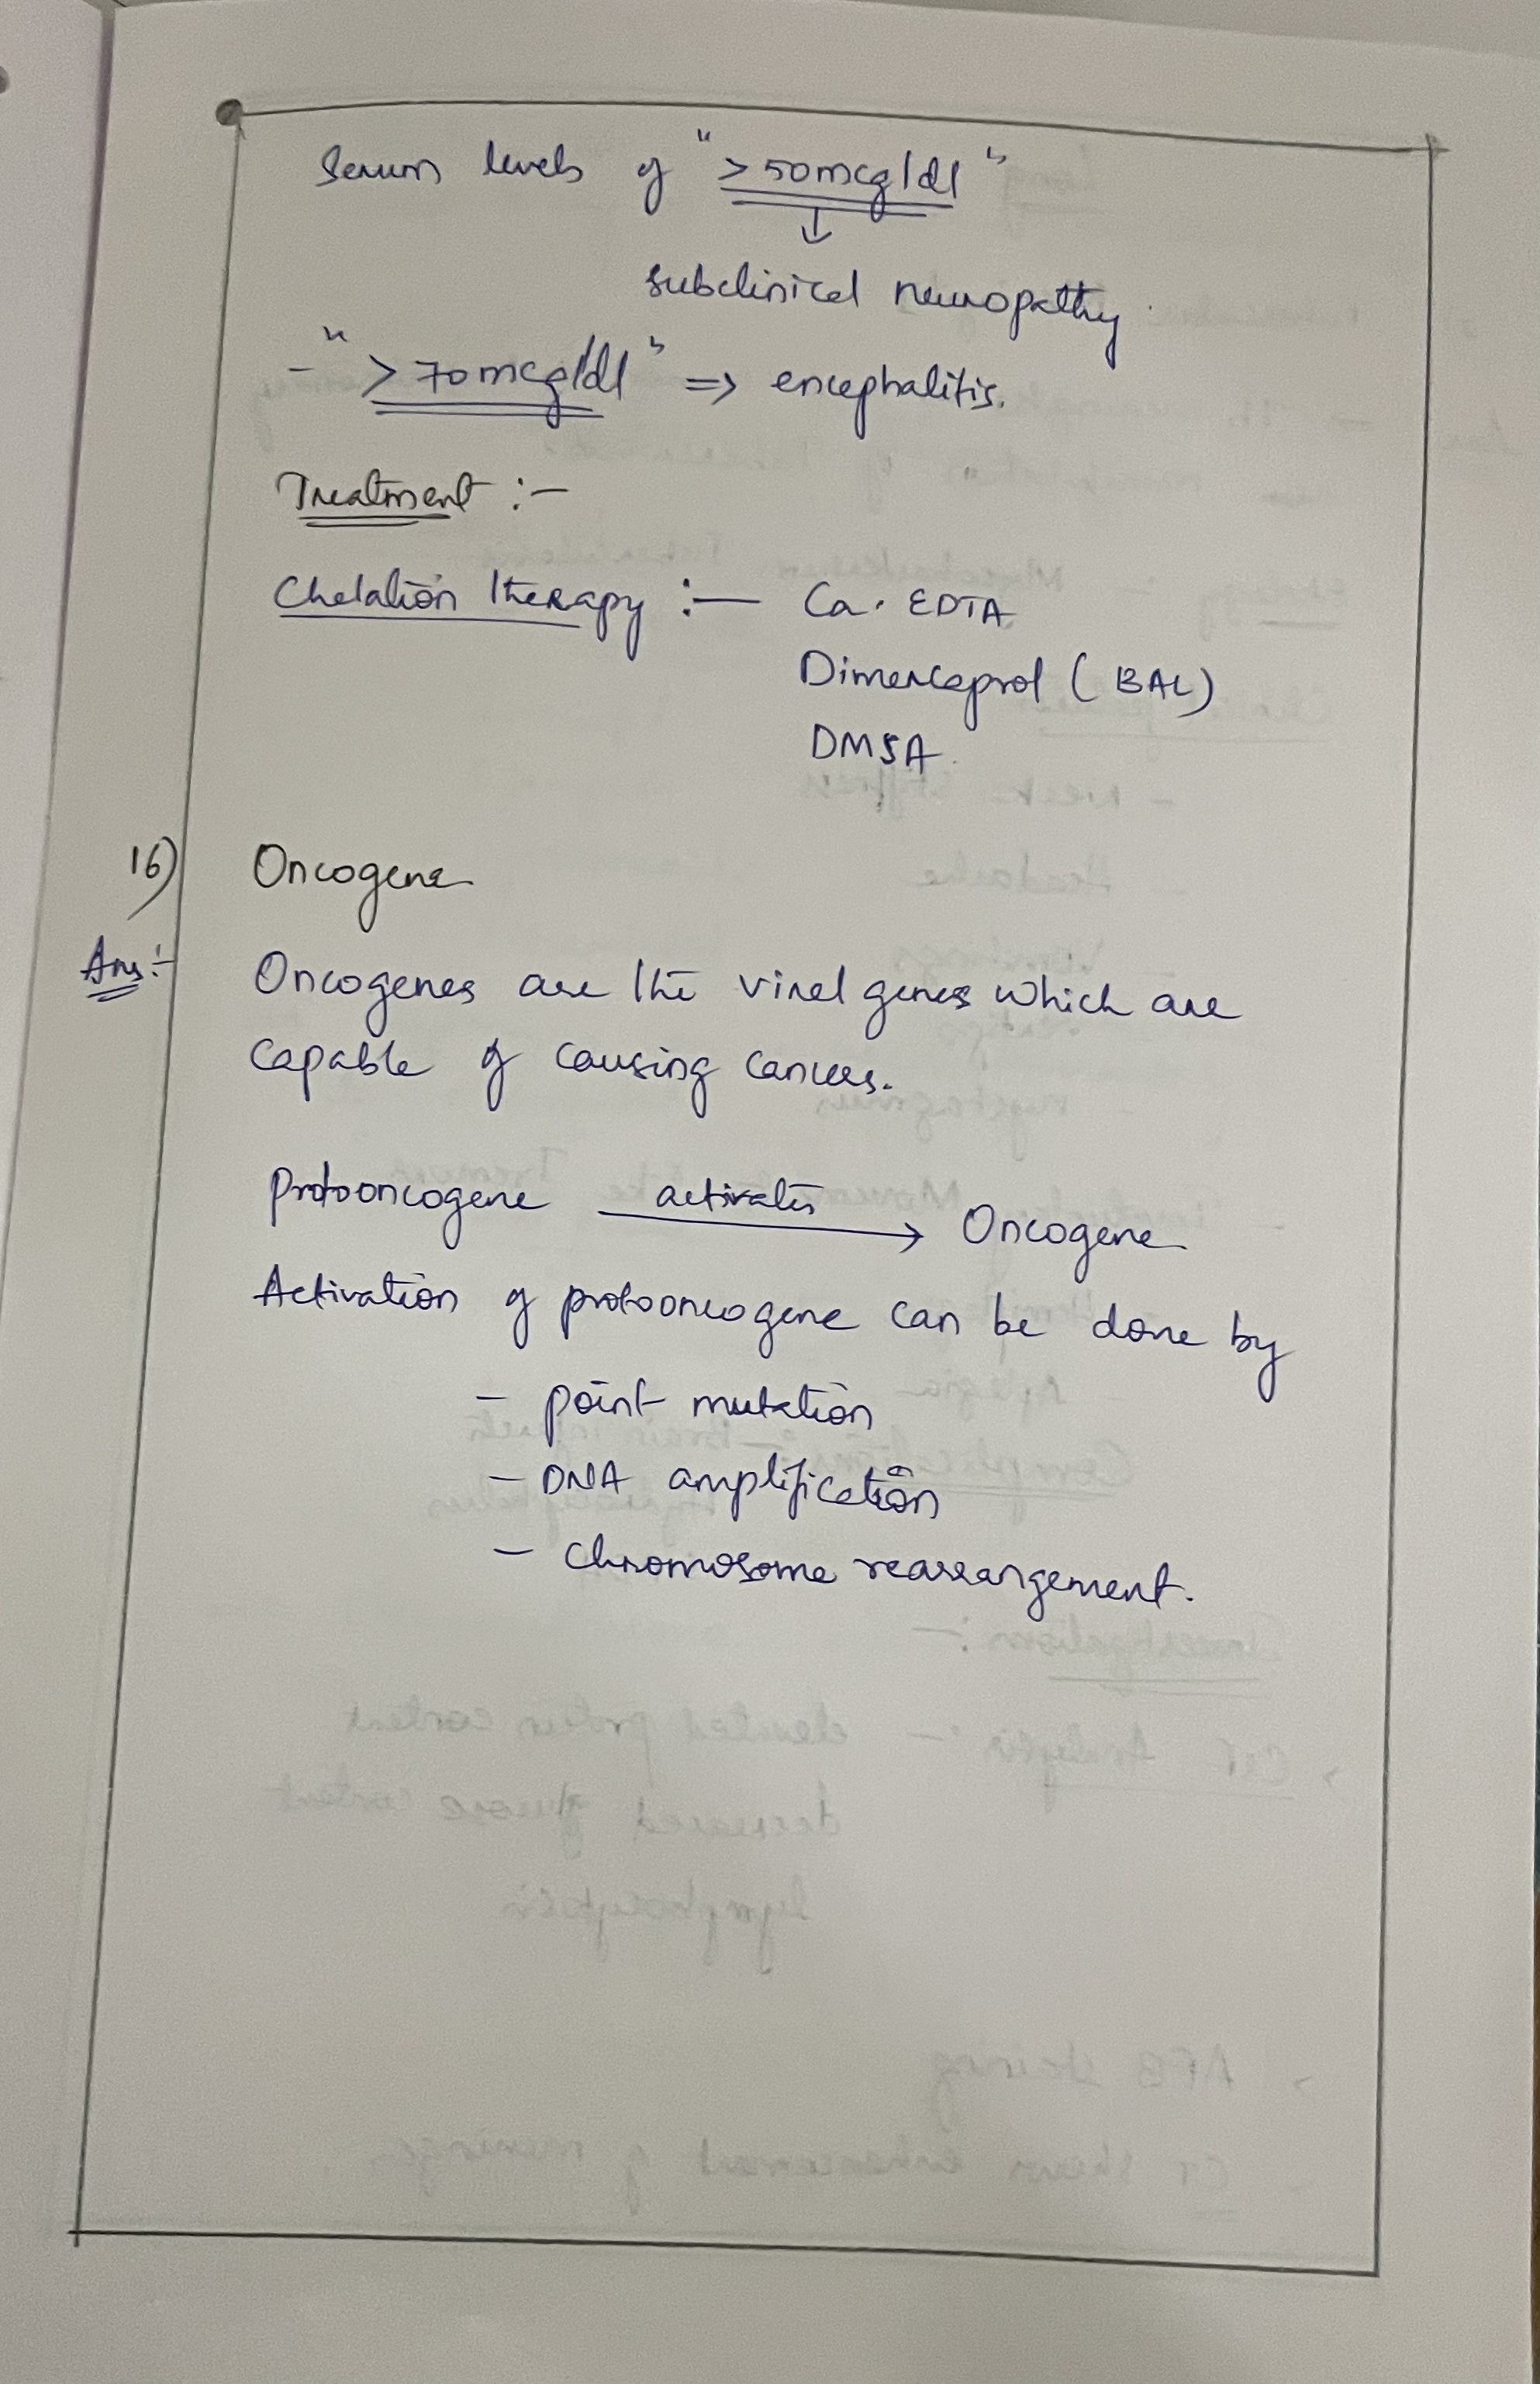 Serum levels of ">50mcg/dl"
↓
subclinical neuropathy
- ">70mcg/dl" => encephalitis.
Treatment :-
Chelation therapy :- Ca. EDTA
Dimercaprol (BAL)
DMSA
16) Oncogene
Ans:- Oncogenes are the viral genes which are
capable of causing cancers.
Protooncogene activates → Oncogene
Activation of protooncogene can be done by
- point mutation
- DNA amplification
- Chromosome rearrangement.